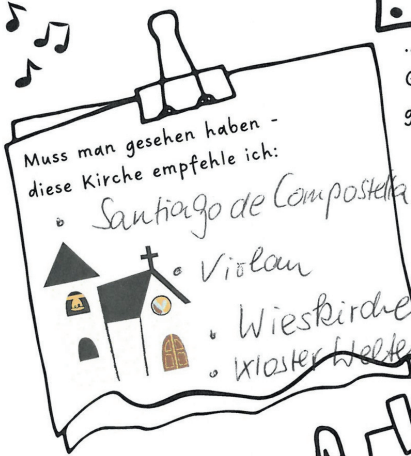 Muss man gesehen haben -
diese Kirche empfehle ich:
Santiago de Compostella
Violau
Wieskirche
Kloster